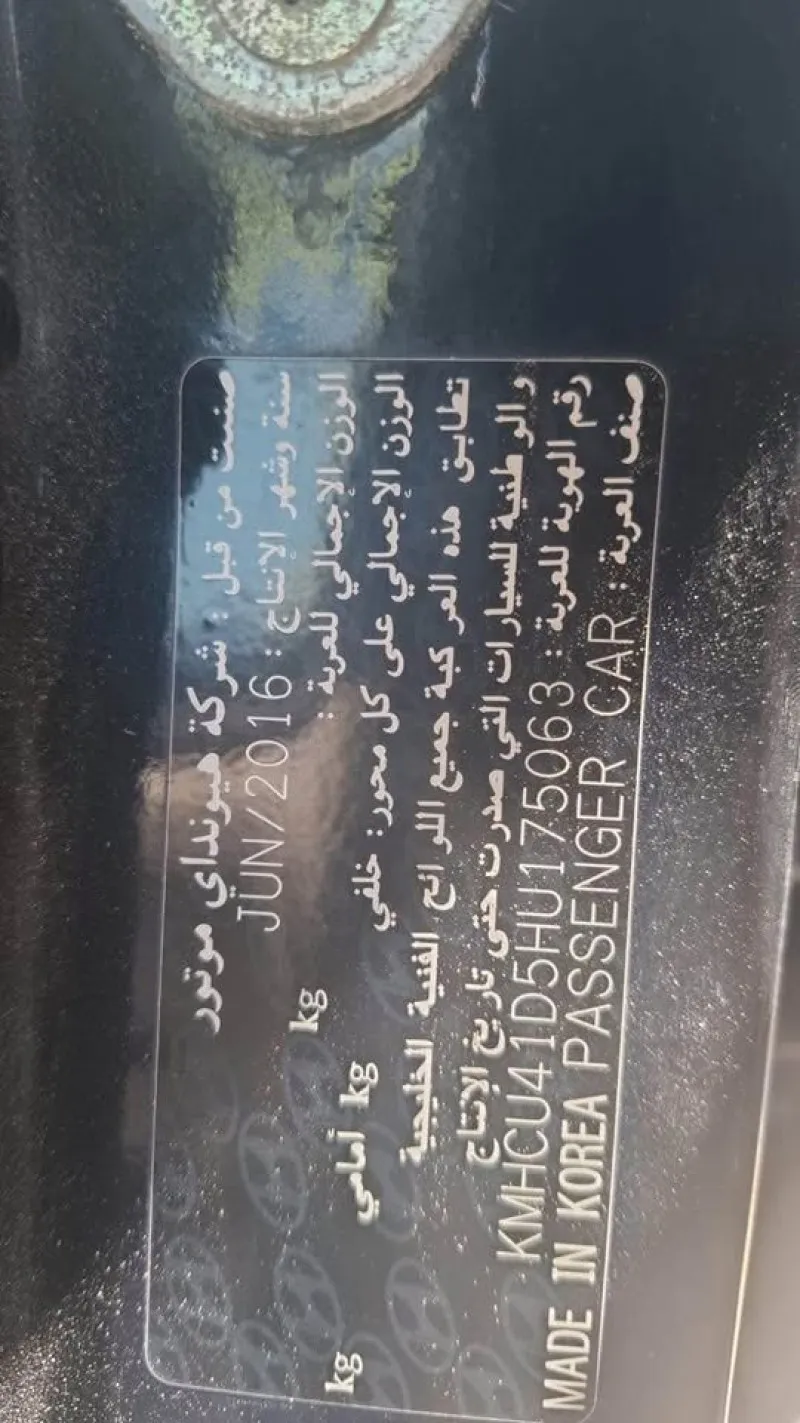 صنعت من قبل : شركة هيونداي موتور
سنة وشهر الإنتاج : JUN/2016
الوزن الإجمالي للعربة : kg
الوزن الإجمالي على كل محور: خلفي kg أمامي kg
تطابق هذه المركبة جميع اللوائح الفنية الخليجية
والوطنية للسيارات التي صدرت حتى تاريخ الإنتاج
رقم الهوية للعربة : KMHCU41D5HU175063
صنف العربة : PASSENGER CAR MADE IN KOREA